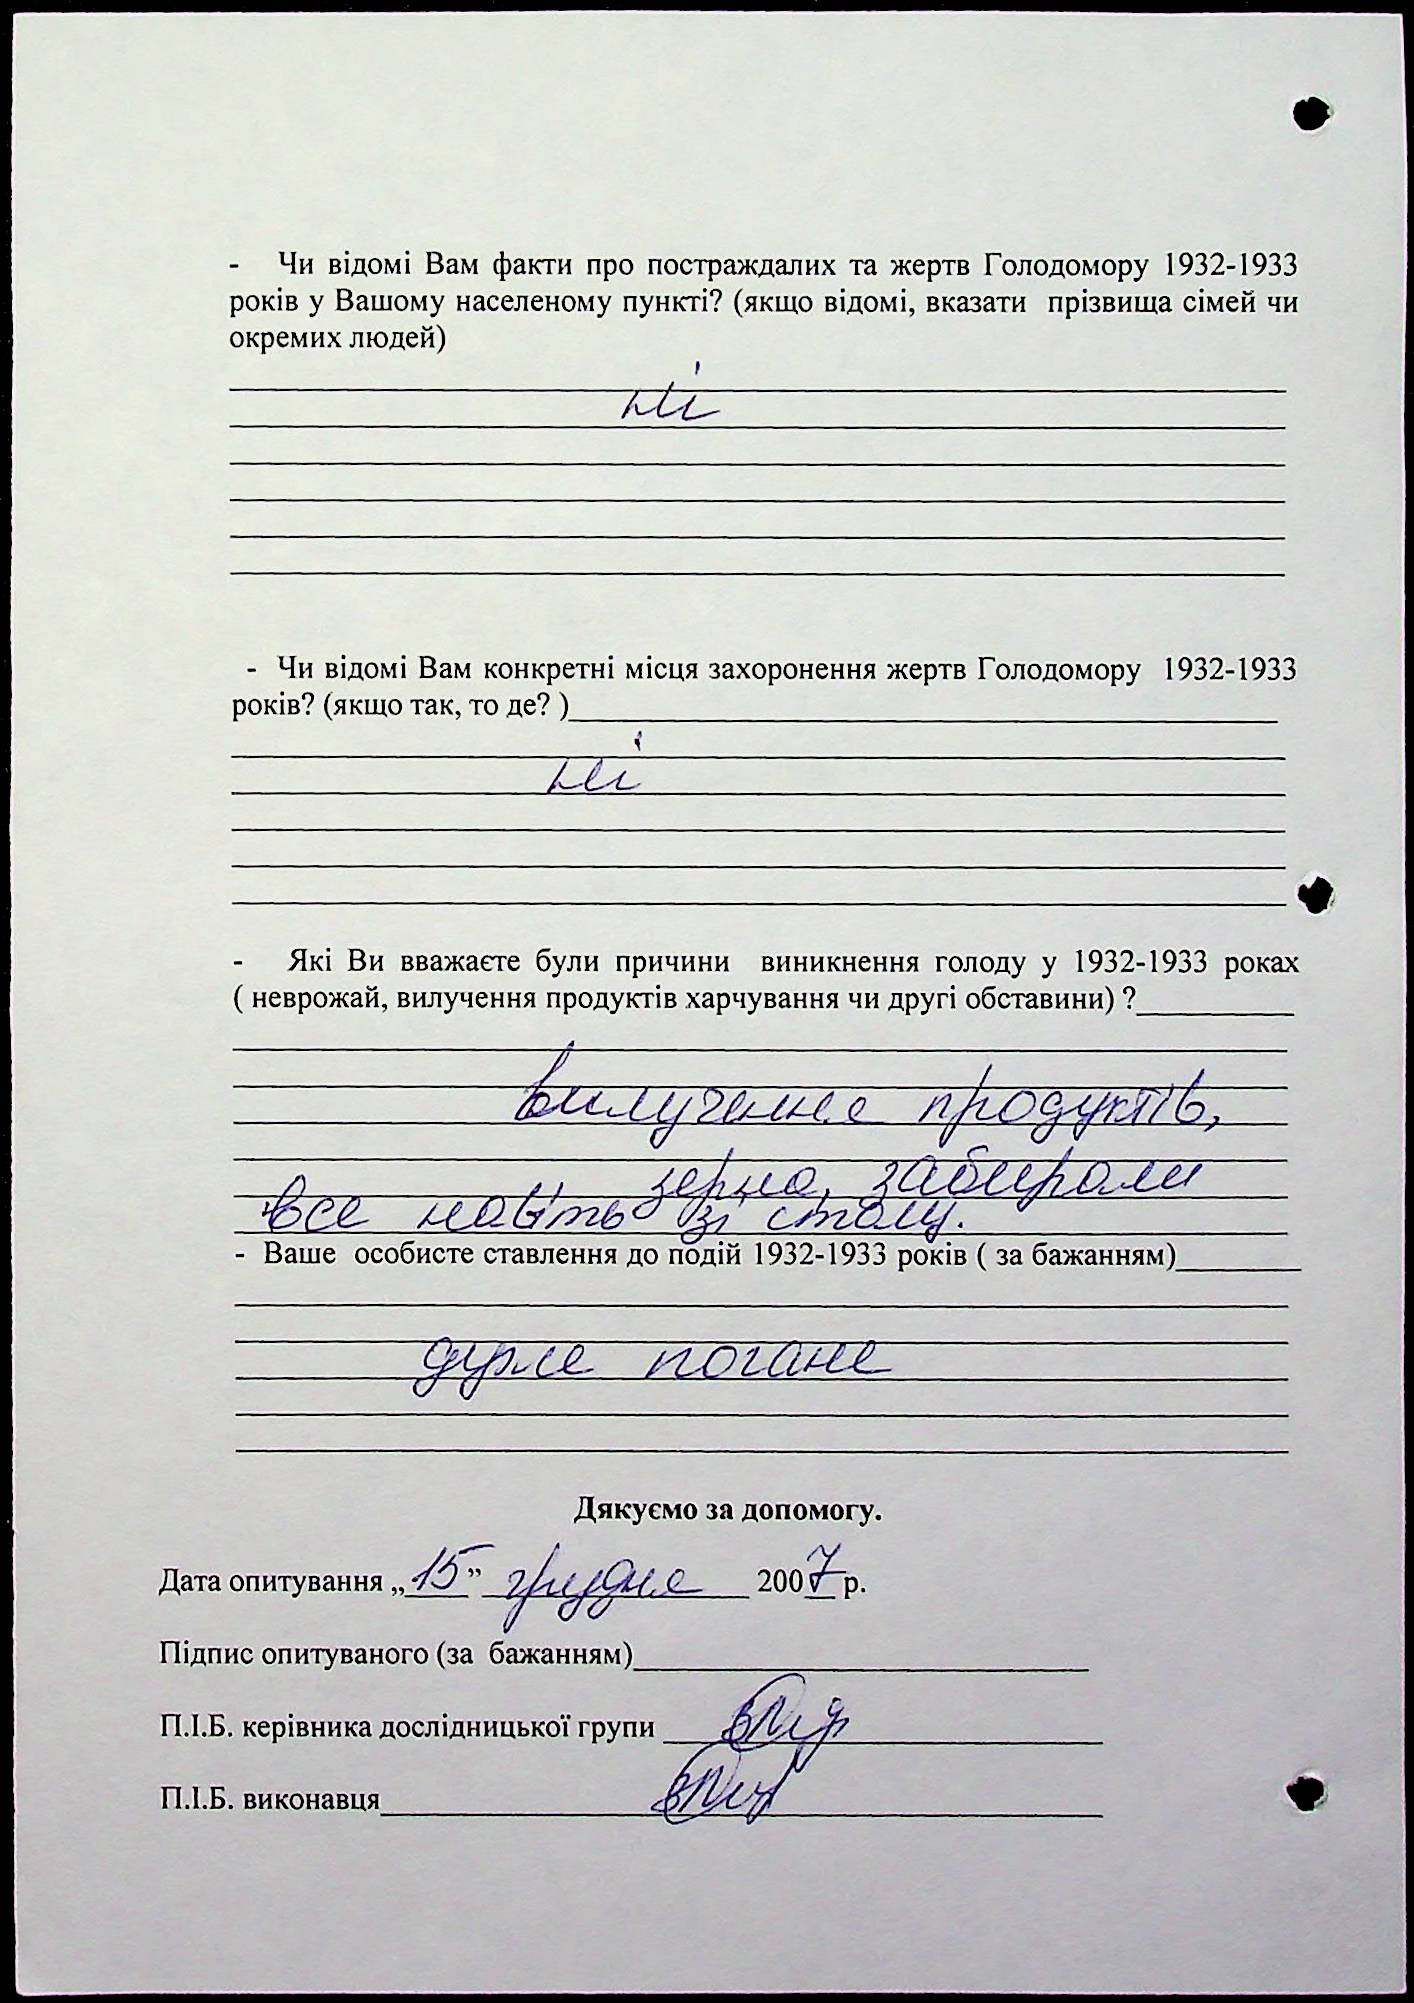 - Чи відомі Вам факти про постраждалих та жертв Голодомору 1932-1933
років у Вашому населеному пункті? (якщо відомі, вказати прізвища сімей чи
окремих людей)
ні
- Чи відомі Вам конкретні місця захоронення жертв Голодомору 1932-1933
років? (якщо так, то де? )
ні
- Які Ви вважаєте були причини виникнення голоду у 1932-1933 роках
( неврожай, вилучення продуктів харчування чи другі обставини) ?
вилучення продуктів,
зерна, забирали
все навіть зі столу.
- Ваше особисте ставлення до подій 1932-1933 років ( за бажанням)
дуже погане
Дякуємо за допомогу.
Дата опитування „15” грудня 2007 р.
Підпис опитуваного (за бажанням)
П.І.Б. керівника дослідницької групи
П.І.Б. виконавця